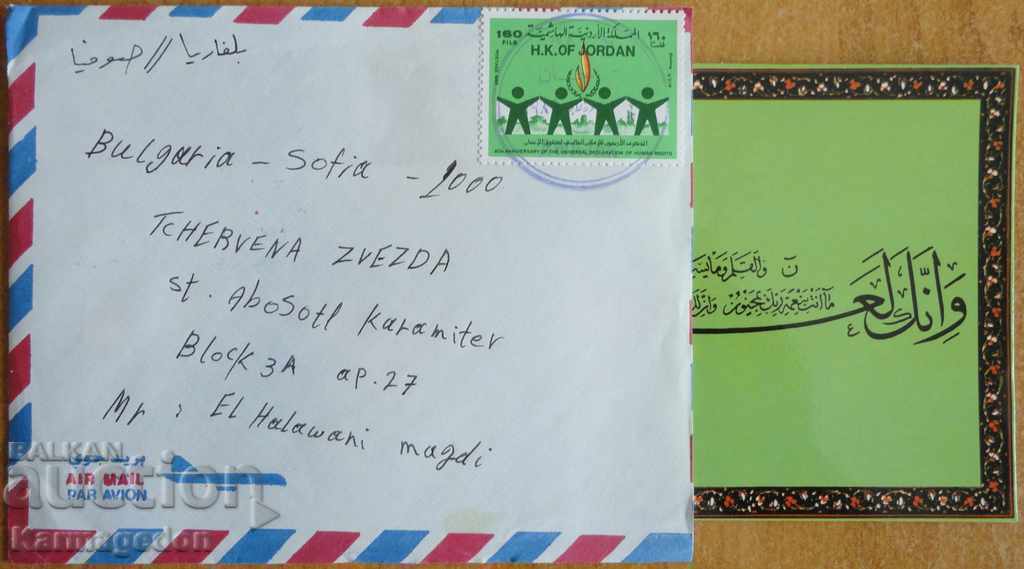 بلغاريا // صوفيا
160
FILS
المملكة الأردنية الهاشمية
١٦٠
فلسا
H.K.OF JORDAN
40th ANNIVERSARY OF THE UNIVERSAL DECLARATION OF HUMAN RIGHTS
Bulgaria - Sofia - 1000
TCHERVENA ZVEZDA
st. AboSotl Karamiter
Block 3A ap.27
Mr : El Halawani magdi
بريد جوي
AIR MAIL
PAR AVION
ن والقلم وما يسـ
ما أنت بنعمة ربك بمجنون وإن لك
وَإِنَّكَ لَعَـ
BALKAN
auction
Karmagedon